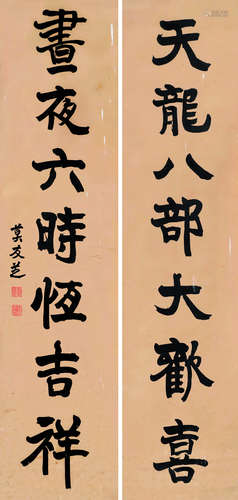 天龍八部大歡喜
晝夜六時恆吉祥
莫友芝